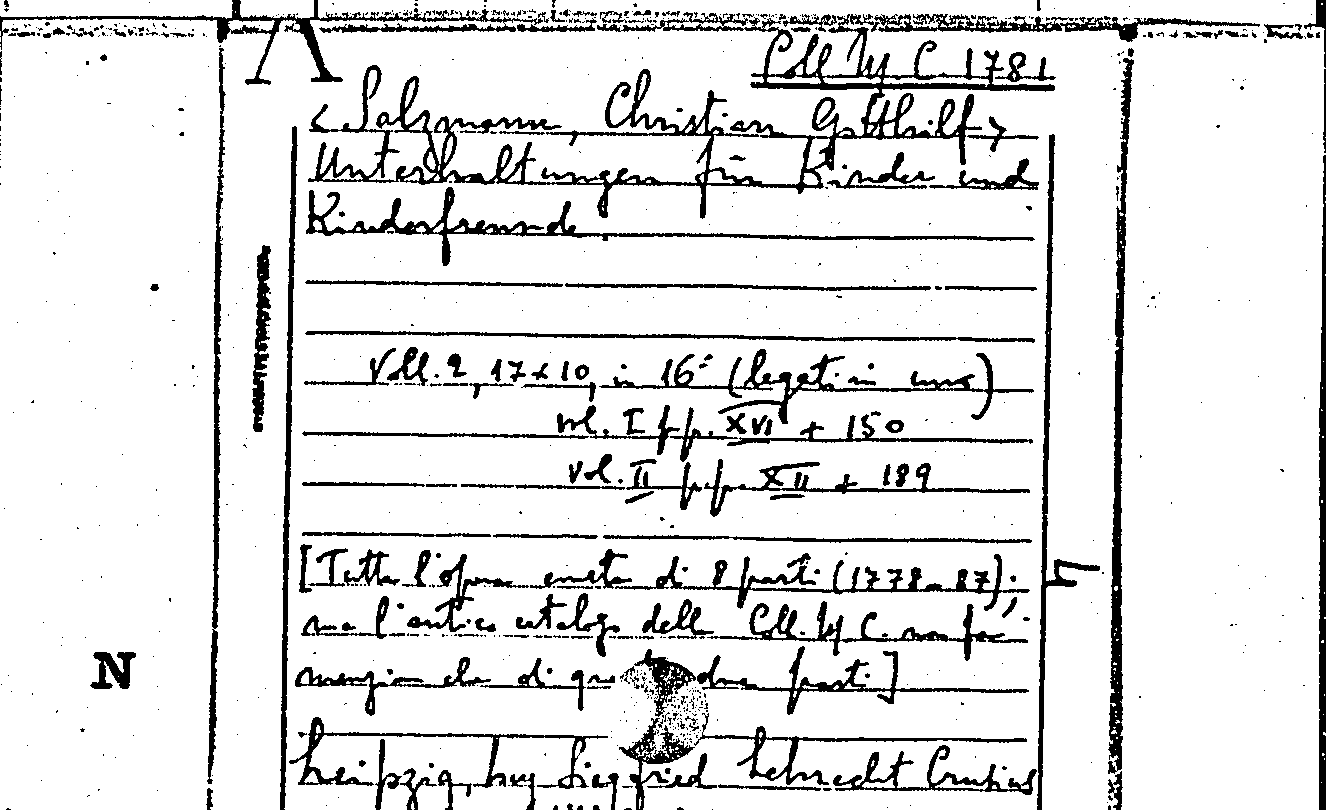 Coll. M C. 1781
< Salzmann, Christian Gotthilf >
Unterhaltungen für Kinder und
Kinderfreunde.
Voll. 2, 17 x 10, in 16° (legati in uno)
vol. I pp. XVI + 150
vol. II pp. XII + 189
[Tutta l'opera consta di 8 parti (1778-87);
ma l'antico catalogo della Coll. M C. non fa
menzione che di due parti]
Leipzig, bey Siegfried Lebrecht Crusius
N